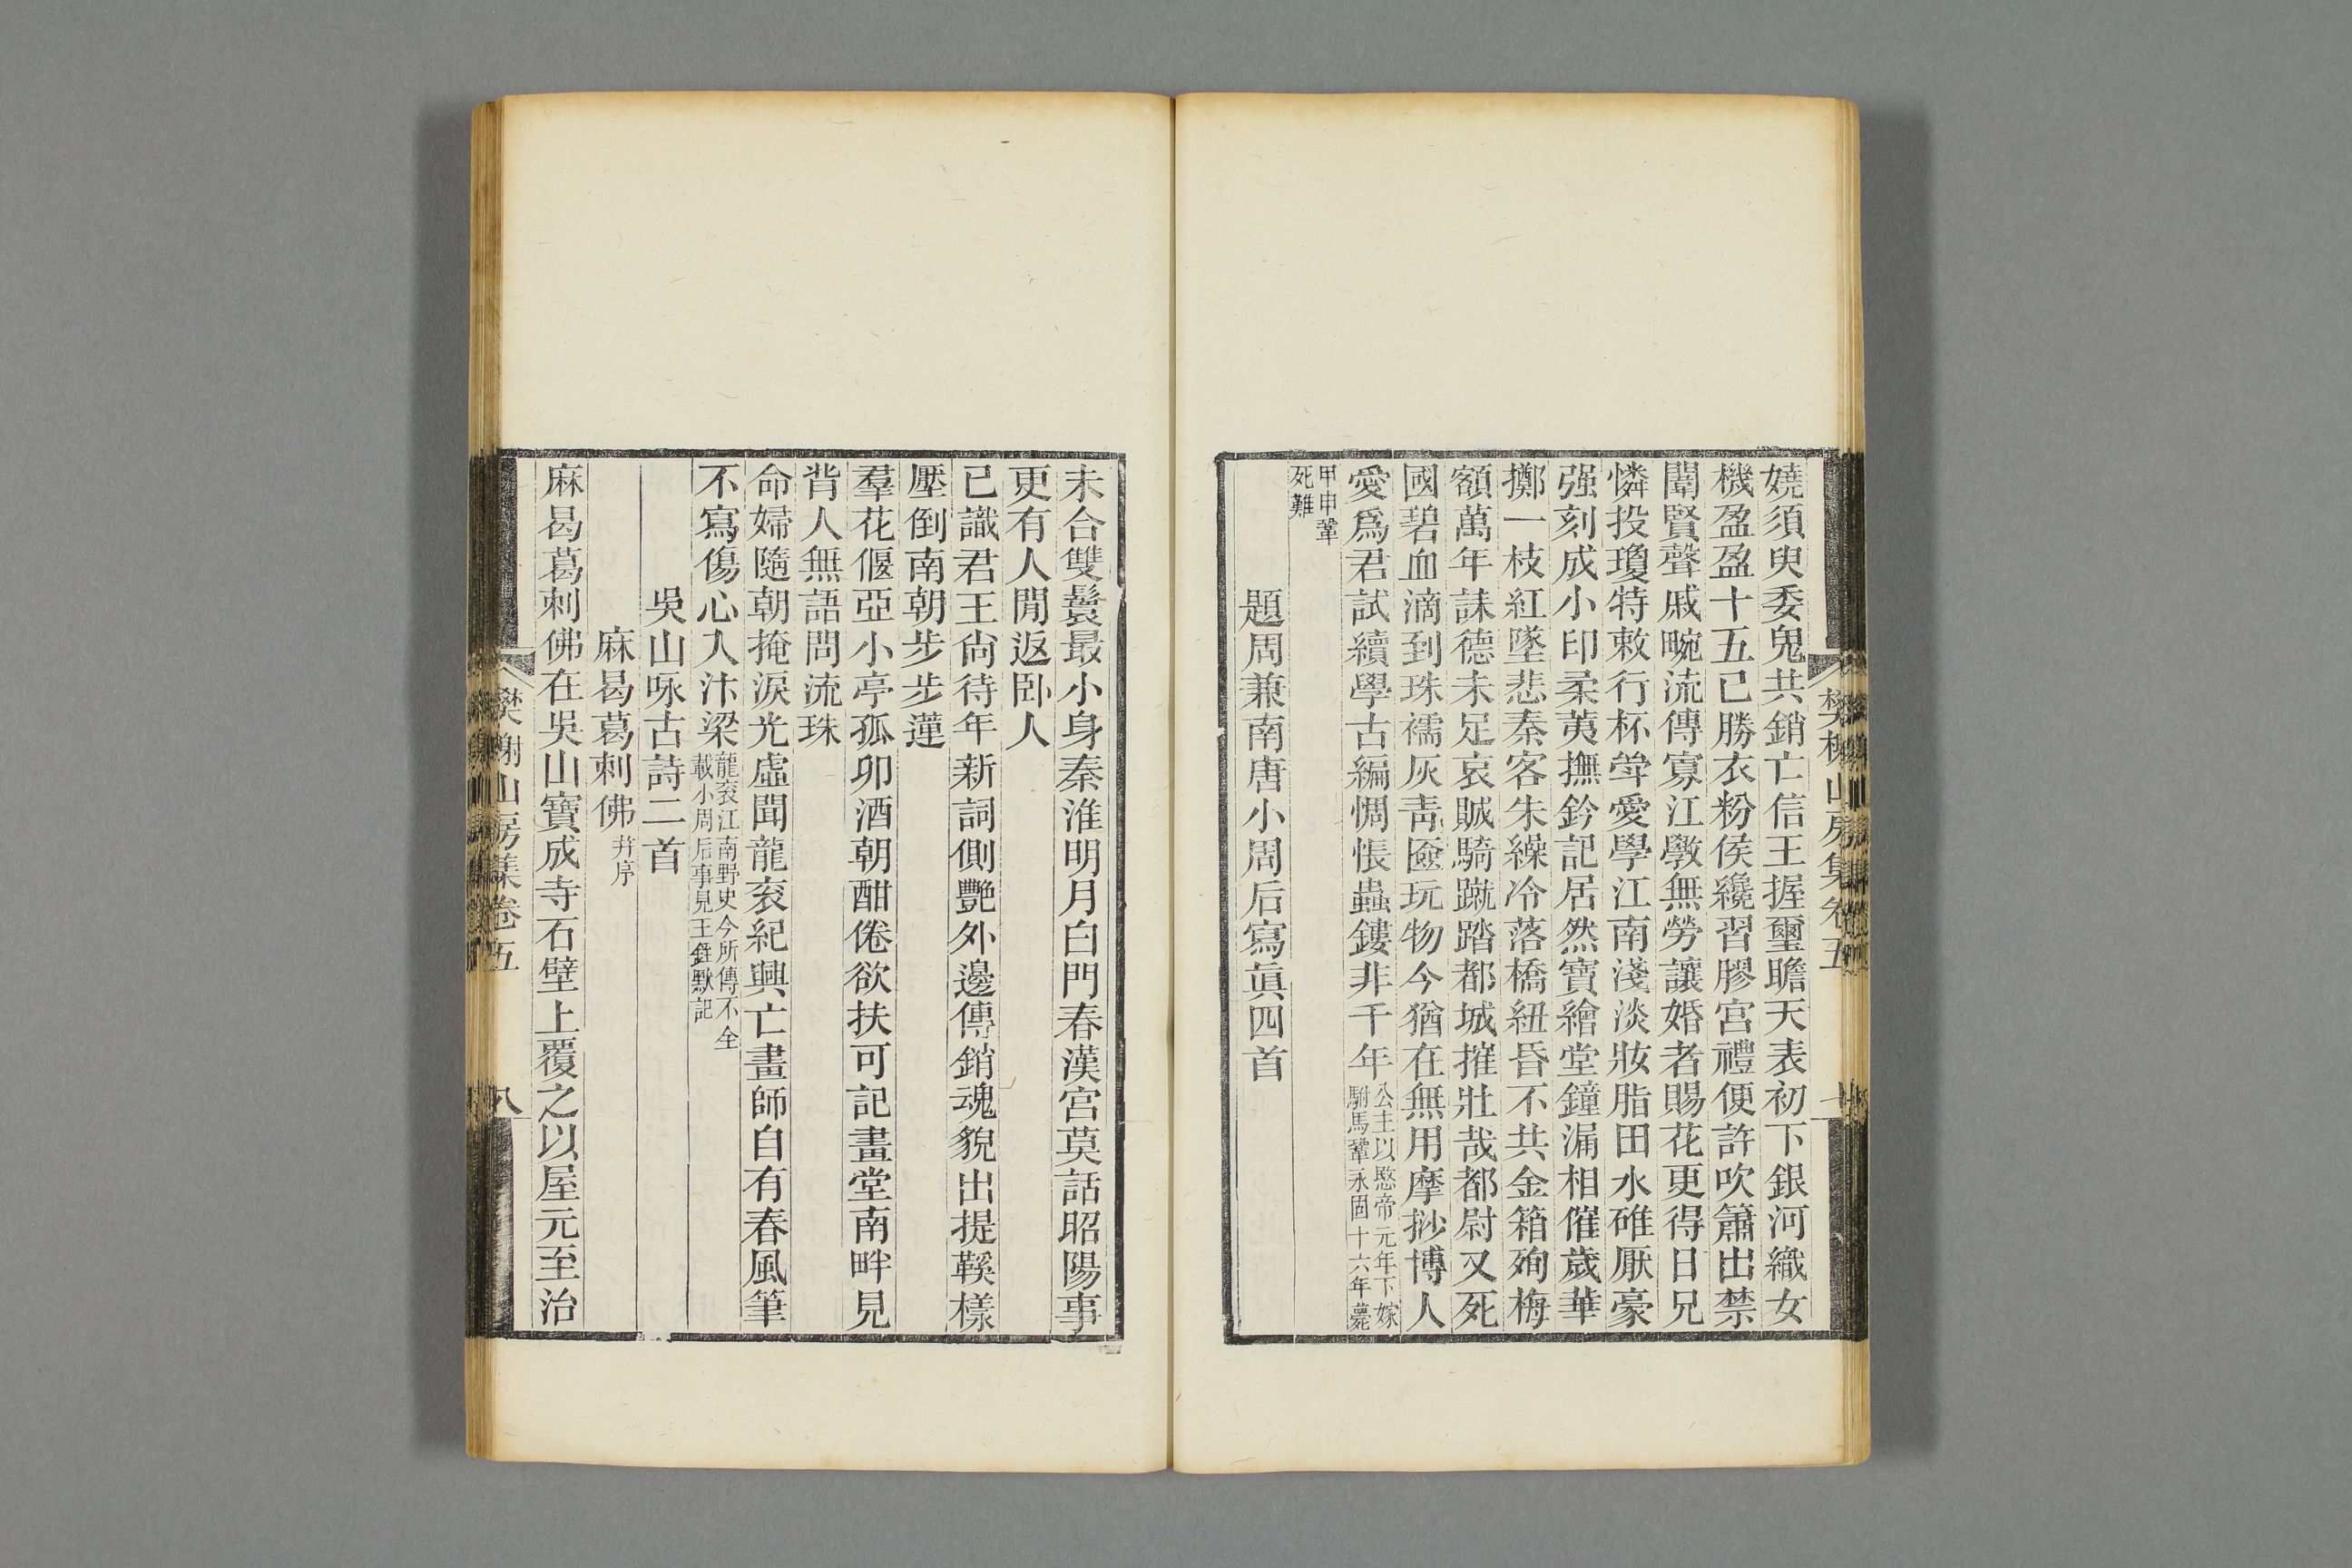 嬈須臾委鬼共銷亡信王握璽瞻天表初下銀河織女
機盈盈十五已勝衣粉侯纔習膠宮禮便許吹簫出禁
闈賢聲戚畹流傳寡江斆無勞讓婚者賜花更得日兄
憐投瓊特敕行杯犖愛學江南淺淡妝脂田水碓厭豪
强刻成小印柔荑撫鈐記居然寶繪堂鐘漏相催歲華
擲一枝紅墜悲秦客朱繰冷落橋紐昏不共金箱殉梅
額萬年誄德未足哀賊騎蹴踏都城摧壯哉都尉又死
國碧血滴到珠襦灰靑奩玩物今猶在無用摩挱博人
愛爲君試續學古編惆悵蟲鏤非千年
公主以愍帝元年下嫁
駙馬鞏永固十六年薨
甲申鞏
死難
題周兼南唐小周后寫眞四首
樊榭山房集卷五
未合雙鬟最小身秦淮明月白門春漢宮莫話昭陽事
更有人間返卧人
已識君王尙待年新詞側艷外邊傳銷魂貌出提鞵樣
壓倒南朝步步蓮
羣花偃亞小亭孤卯酒朝酣倦欲扶可記畫堂南畔見
背人無語問流珠
命婦隨朝掩淚光虛聞龍衮紀興亡畫師自有春風筆
不寫傷心入汴梁
龍衮江南野史今所傳不全
載小周后事見王銍默記
吳山咏古詩二首
麻曷葛剌佛幷序
麻曷葛剌佛在吳山寶成寺石壁上覆之以屋元至治
樊榭山房集卷五
八